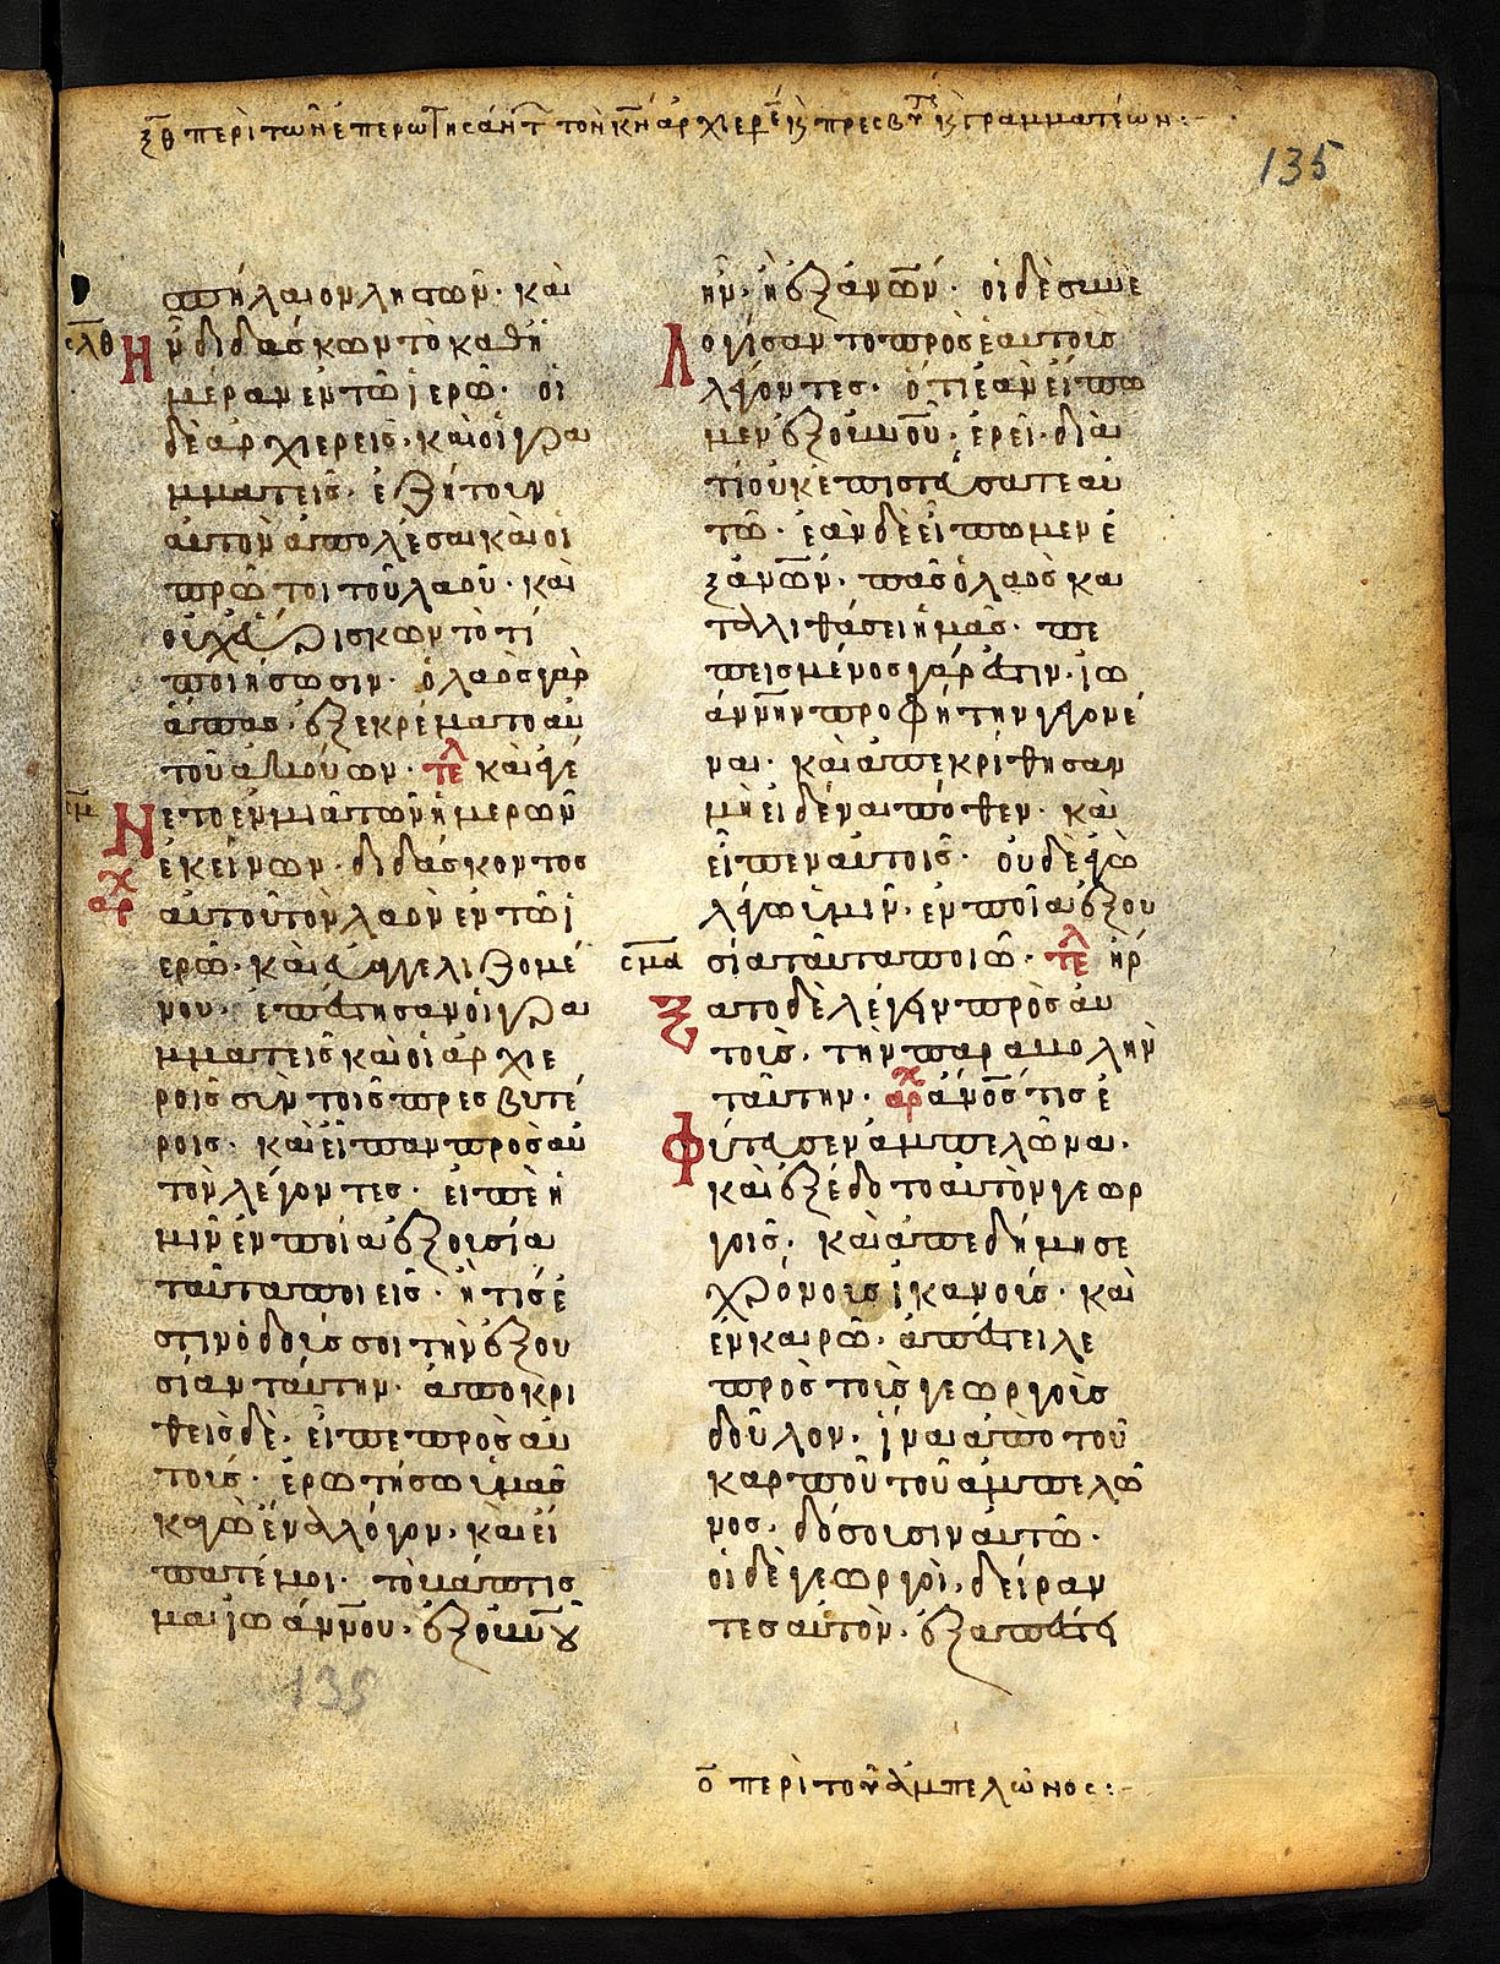 ξθ περὶ τῶν ἐπερωτησάντ τὸν κν ἀρχιερέ κ πρεσβυτ κ γραμματέων:
135
σπήλαιον ληστῶν· καὶ
σλθ Ην διδάσκων τὸ καθη
μέραν ἐν τῶ ἱερῶ· οἱ
δὲ ἀρχιερεῖς· καὶ οἱ γρα
μματεῖς· ἐζήτουν
αὐτὸν ἀπολέσαι καὶ οἱ
πρῶτοι τοῦ λαοῦ· καὶ
οὐχ εὕρισκων τὸ τί
ποιήσωσιν· ὁ λαὸς γὰρ
ἅπας· ἐξεκρέματο αὐ
τοῦ ἀκούων· τελ καὶ ἐγέ
σμ Νετο ἐν μιᾶ τῶν ἡμερῶν
ἐκείνων· διδάσκοντος
αρχ αὐτοῦ τὸν λαὸν ἐν τῶ ἱ
ερῶ· καὶ εὐαγγελιζομέ
νου· ἐπέστησαν οἱ γρα
μματεῖς καὶ οἱ ἀρχιε
ρεῖς σὺν τοῖς πρεσβυτέ
ροις· καὶ εἶπαν πρὸς αὐ
τὸν λέγοντες· εἰπὲ ἡ
μῖν ἐν ποία ἐξουσία
ταῦτα ποιεῖς· ἢ τίς ἐ
στιν ὁ δούς σοι τὴν ἐξου
σίαν ταύτην· ἀποκρι
θεὶς δὲ· εἶπε πρὸς αὐ
τούς· ἐρωτήσω ὑμᾶς
κἀγὼ ἕνα λόγον· καὶ εἴ
πατέ μοι· τὸ βάπτισ
μα ἰωάννου· ἐξ οὐνου
135
ἦν· ἢ ἐξ ἀνων· οἱ δὲ συνε
Λογίσαντο πρὸς ἑαυτοὺς
λέγοντες· ὅτι ἐὰν εἴπω
μεν ἐξ οὐνου· ἐρεῖ· διὰ
τί οὐκ ἐπιστεύσατε αὐ
τῶ· ἐὰν δὲ εἴπωμεν ἐ
ξ ἀνων· πᾶς ὁ λαὸς κα
ταλιθάσει ἡμᾶς· πε
πεισμένος γάρ ἐστιν· ἰω
άννην προφήτην γεγονέ
ναι· καὶ ἀπεκρίθησαν
μὴ εἰδέναι πόθεν· καὶ
εἶπεν αὐτοῖς· οὐδὲ ἐγὼ
λέγω ὑμῖν· ἐν ποία ἐξου
σμα σία ταῦτα ποιῶ· τελ ἤρ
ξατο δὲ λέγειν πρὸς αὐ
τοὺς· τὴν παραβολὴν
ταύτην· αρχ ἄνος τις ἐ
Φύτευσεν ἀμπελῶνα·
καὶ ἐξέδοτο αὐτὸν γεωρ
γοῖς· καὶ ἀπεδήμησε
χρόνους ἱκανούς· καὶ
ἐν καιρῶ· ἀπέστειλε
πρὸς τοὺς γεωργοὺς
δοῦλον· ἵνα ἀπὸ τοῦ
καρποῦ τοῦ ἀμπελῶ
νος· δώσουσιν αὐτῶ·
οἱ δὲ γεωργοὶ· δείραν
τες αὐτὸν· ἐξαπέστει
ο περὶ τοῦ ἀμπελῶνος: